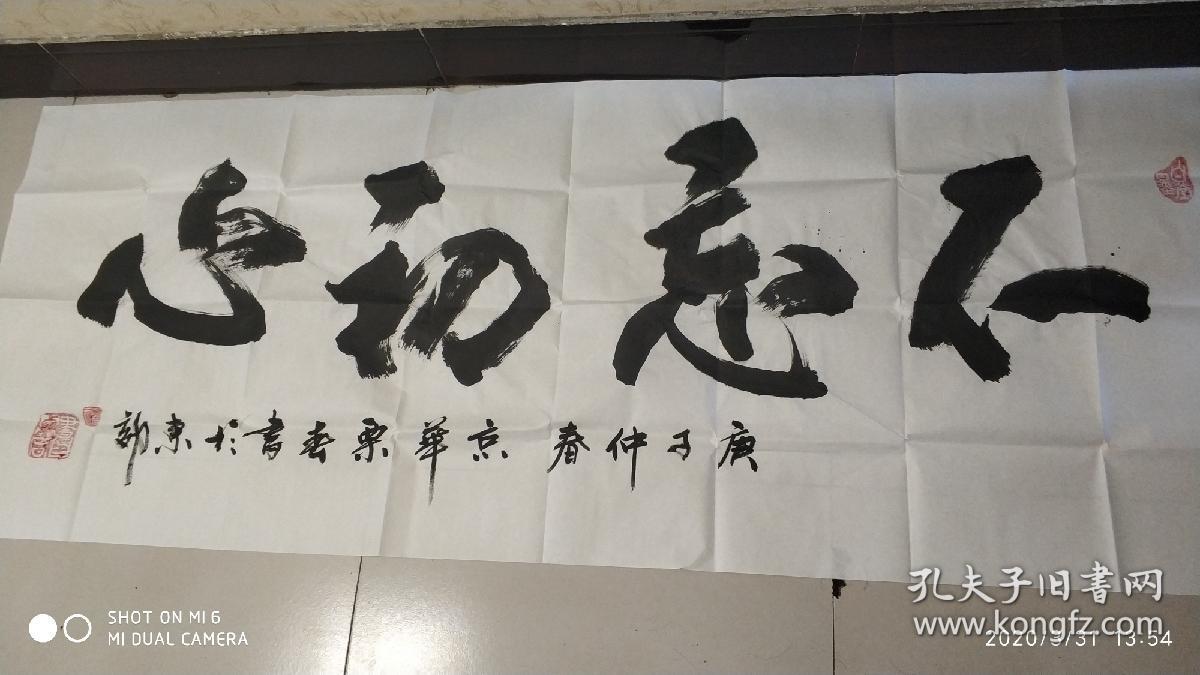 不忘初心
庚子仲春 京華栗春書於東
SHOT ON MI 6
MI DUAL CAMERA
孔夫子旧書网
www.kongfz.com
2020/3/31 13:54